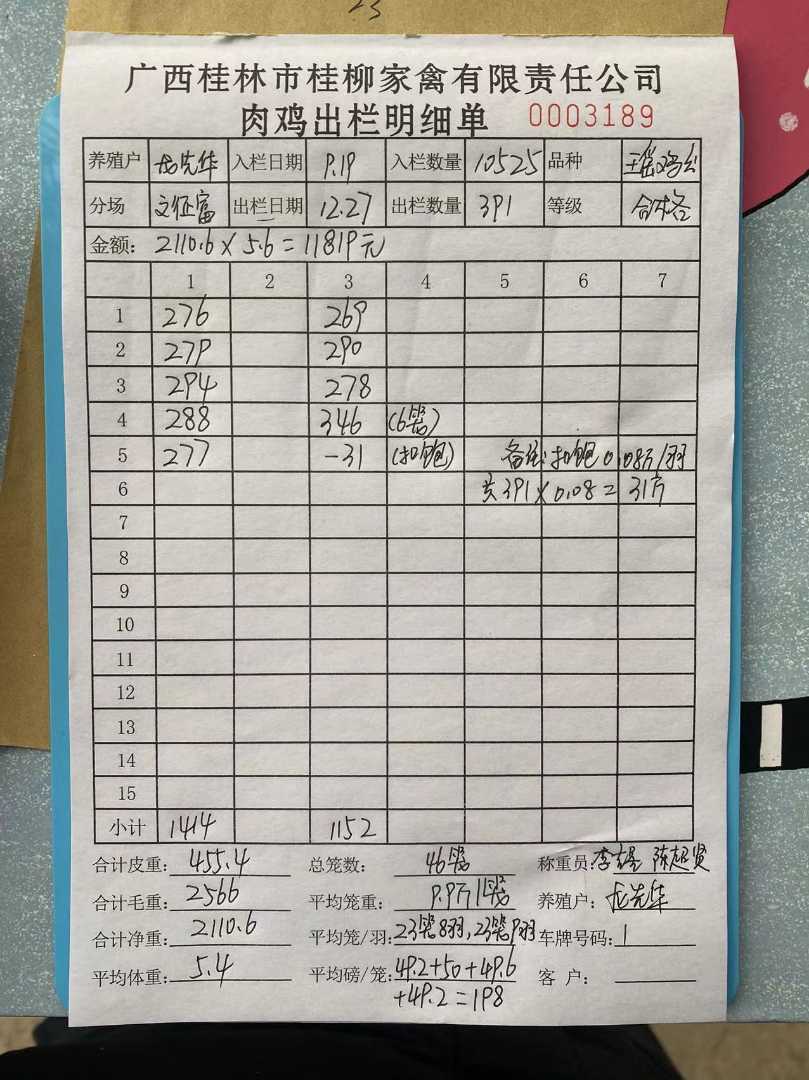 23
广西桂林市桂柳家禽有限责任公司
肉鸡出栏明细单 0003189
养殖户 龙先华 入栏日期 9.19 入栏数量 10525 品种
分场 出栏日期 12.27 出栏数量 391 等级 合格
金额: 2110.6 × 5.6 = 11819元
1 2 3 4 5 6 7
1 276 269
2 279 290
3 294 278
4 288 346 (6笼)
5 277 -31 (扣饱) 备注:扣饱0.08斤/羽
6 共391×0.08=31斤
7
8
9
10
11
12
13
14
15
小计 1414 1152
合计皮重: 455.4 总笼数: 46笼 称重员: 陈超贤
合计毛重: 2566 平均笼重: 9.9斤/笼 养殖户: 龙先华
合计净重: 2110.6 平均笼/羽: 23笼8羽,23笼9羽 车牌号码: 1
平均体重: 5.4 平均磅/笼: 49.2+50+49.6 客 户:
+49.2=198